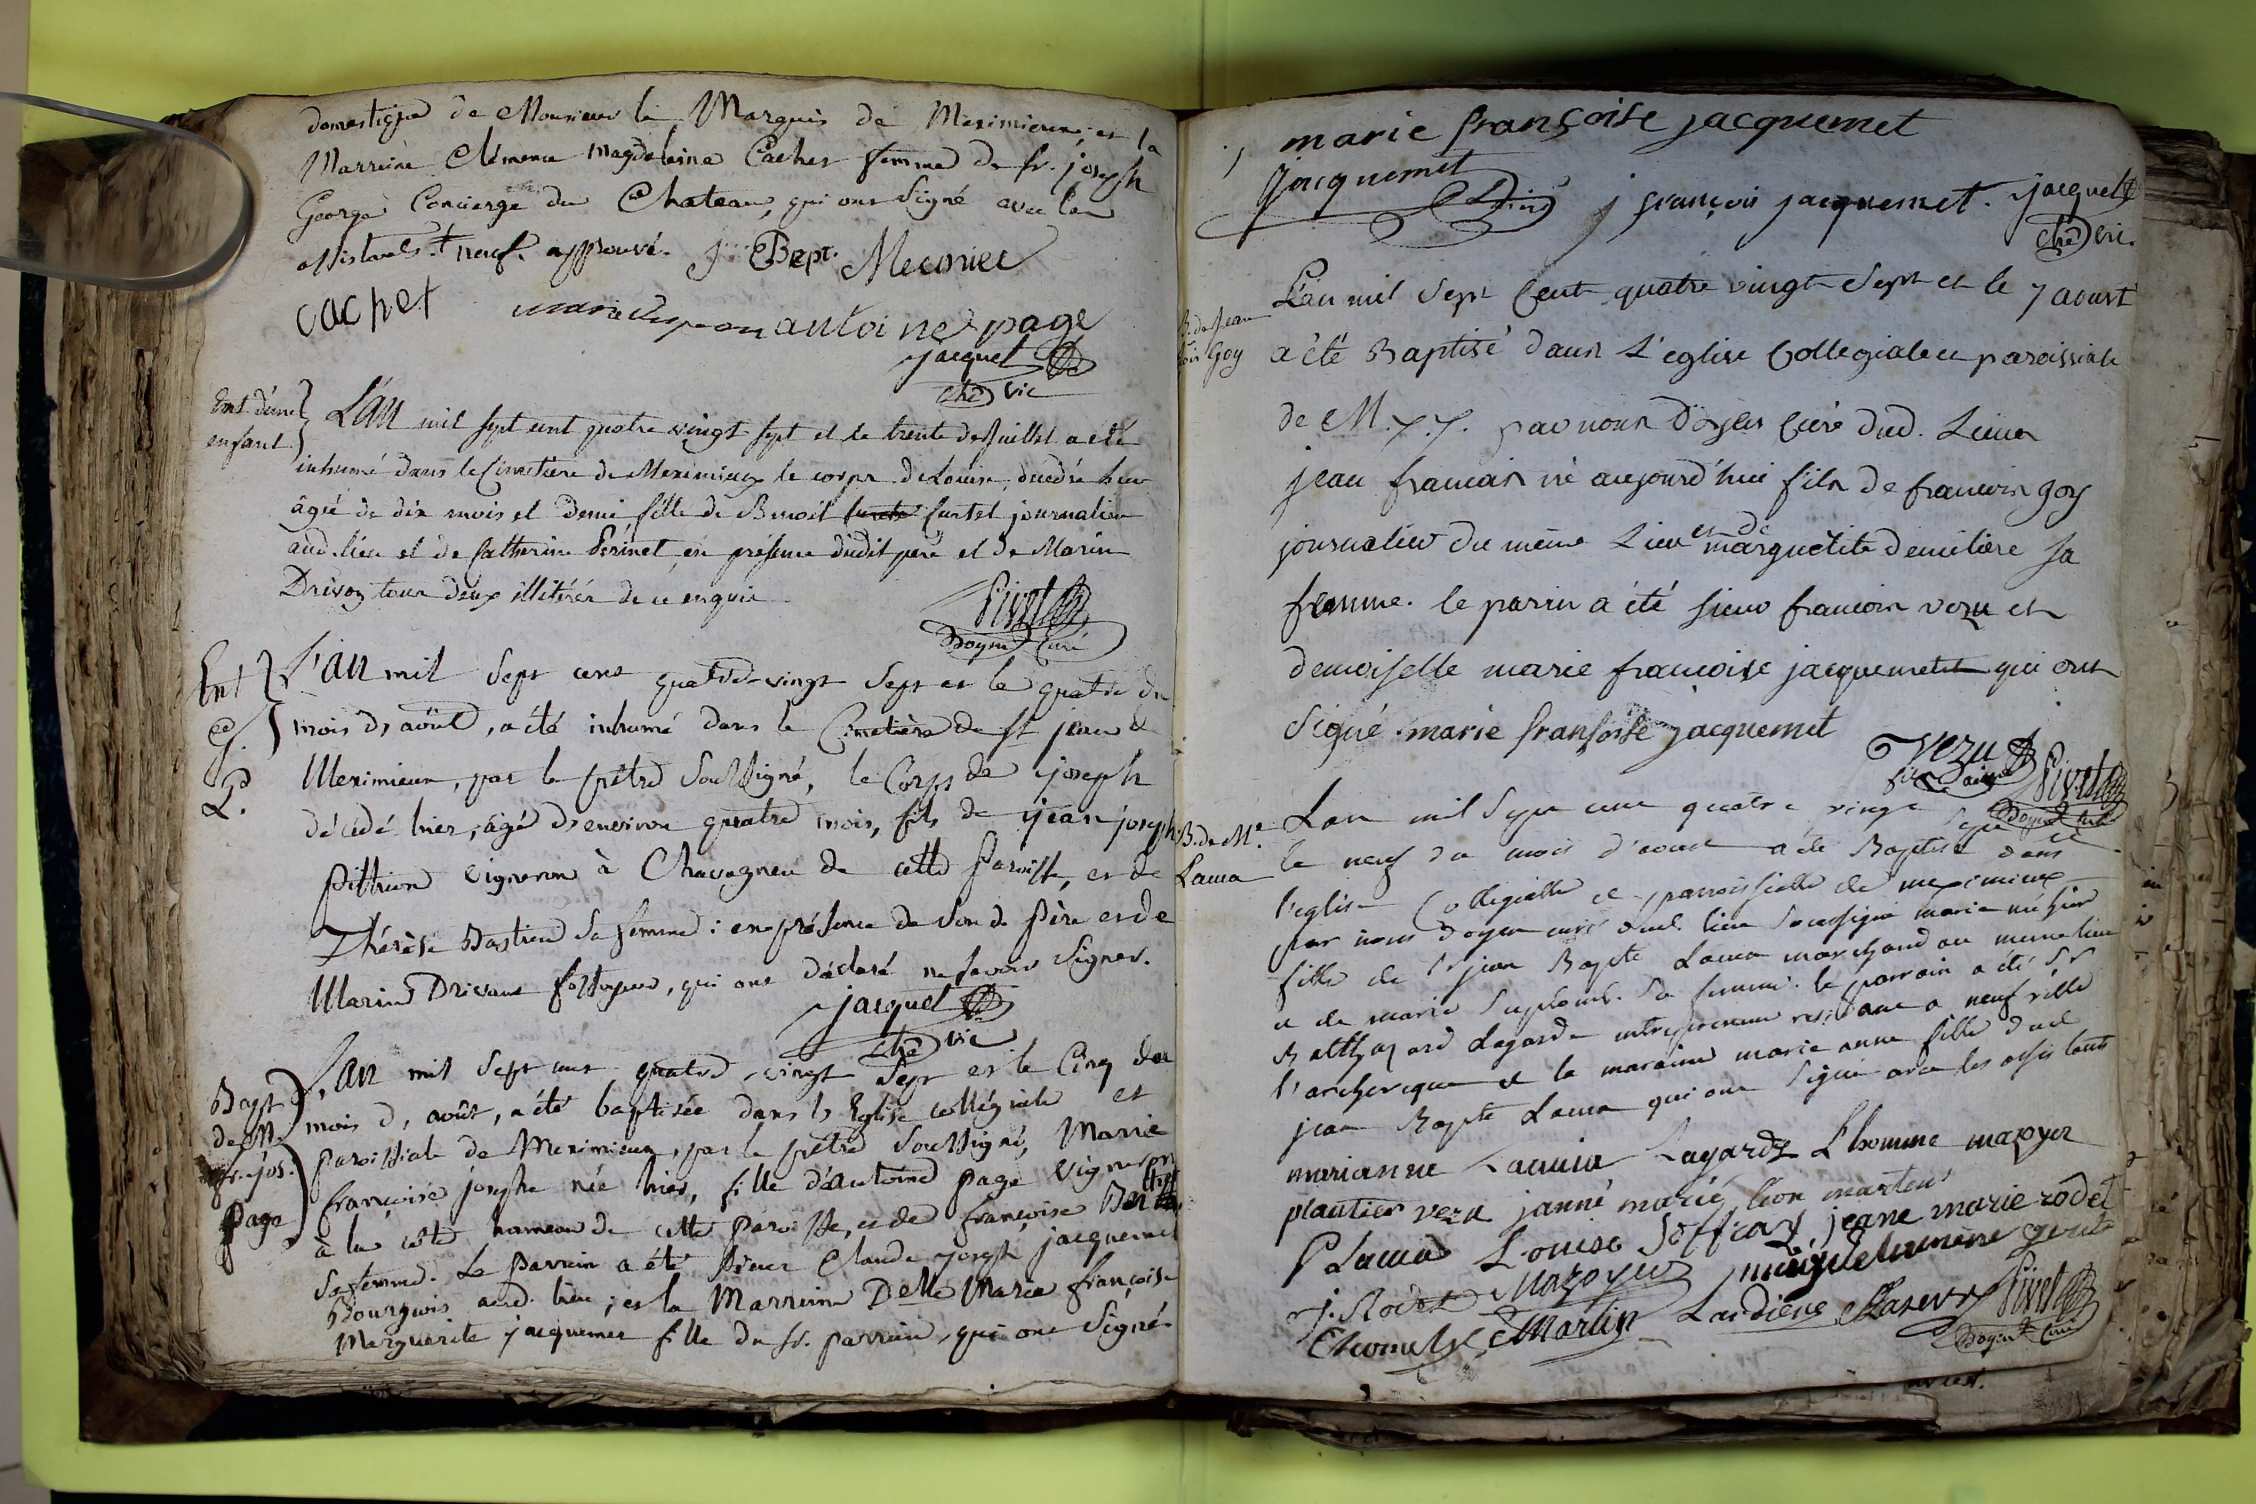 domestique de Monsieur le Marquis de Meximieux, et la
Marreine Clémence Magdeleine Cachet femme de sr. joseph
George Concierge du Chateau, qui ont Signé avec les
assistants. † neuf. approuvé. j: Bapt. Meunier
cachet antoine page
jacquet
vic
Ent. d'une
enfant
L'an mil sept cent quatre vingt sept et le trente de Juillet a été
inhumé dans le Cimetière de Meximieux le corps de Louise, décédée hier
âgée de dix mois et demi fille de Benoit Curtet journalier
aud. lieu et de Catherine Perinet, en présence dudit père et de Marin
Drivon tous deux illitérés de ce enquis
Sivet
Doyen Curé
Ent
G.
P.
L'an mil Sept cent quatre-vingt Sept et le quatre du
mois d'août, a été inhumé dans le Cimetière de St jean de
Meximieux, par le prêtre Soussigné, le Corps de joseph
décédé hier, âgé d'environ quatre mois, fils de jean joseph
vigneron à Chavagneu de cette Paroisse, et de
Thérèse Bastien Sa femme: en présence de Son d. Père et de
Marin Drivon fossoyeur, qui ont déclaré ne savoir Signer.
jacquet
vic
Bapt.
de Me
fr. jos.
Page
L'an mil Sept cent quatre-vingt Sept et le Cinq du
mois d'août, a été baptisée dans l'Eglise collégiale et
paroissiale de Meximieux, par le prêtre Soussigné, Marie
françoise josephe née hier, fille d'antoine page vigneron
à la côte hameau de cette Paroisse, et de françoise
Sa femme. Le Parrein a été Sieur Claude joseph jacquemet
Bourgeois aud. lieu; et la Marreine Delle Marie françoise
Marguerite jacquemet fille du sr. parrein, qui ont Signé
marie françoise jacquemet
jacquemet j françois jacquemet. jacquet
vic.
B. de Jean
fois Goy
L'an mil Sept Cent quatre vingt Sept et le 7 aoust
a été Baptisé dans L'eglise Collegiale et paroissiale
de M.x.x. par nous Doyen Curé dud. Lieu
jean francois né aujourd'hui fils de francois goy
journalier du même Lieu et de marguetite demelière sa
femme. le parrin a été sieur francois vezu et
demoiselle marie francoise jacquemetet qui ont
Signé marie françoise jacquemet
Vezu
fils ainé Sivet
Doyen Curé
B. de Me.
Lama
L'an mil Sept cent quatre vingt Sept et
le neuf du mois d'aoust a été Baptisé dans
l'eglise Collegialle et parroissialle de meximieux
par nous doyen curé dud. lieu Soussigné marie né hier
fille de Sr jean Bapte Lama marchand au meme lieu
et de marie Sa femme. le parrain a été Sr
Balthazard Lagarde entrepreneur residant a neufville
l'archeveque et la maraine marie anne fille dud
jean Bapte Lama qui ont Signé avec les assistants
marianne Lamma Lagarde Lhomme mazoyer
plantier vezu janné marié lion
P Lama Louise Soffray jeane marie rodet
J. Rodet Mazoyer
Martin Lardiere Sivet
Doyen Curé